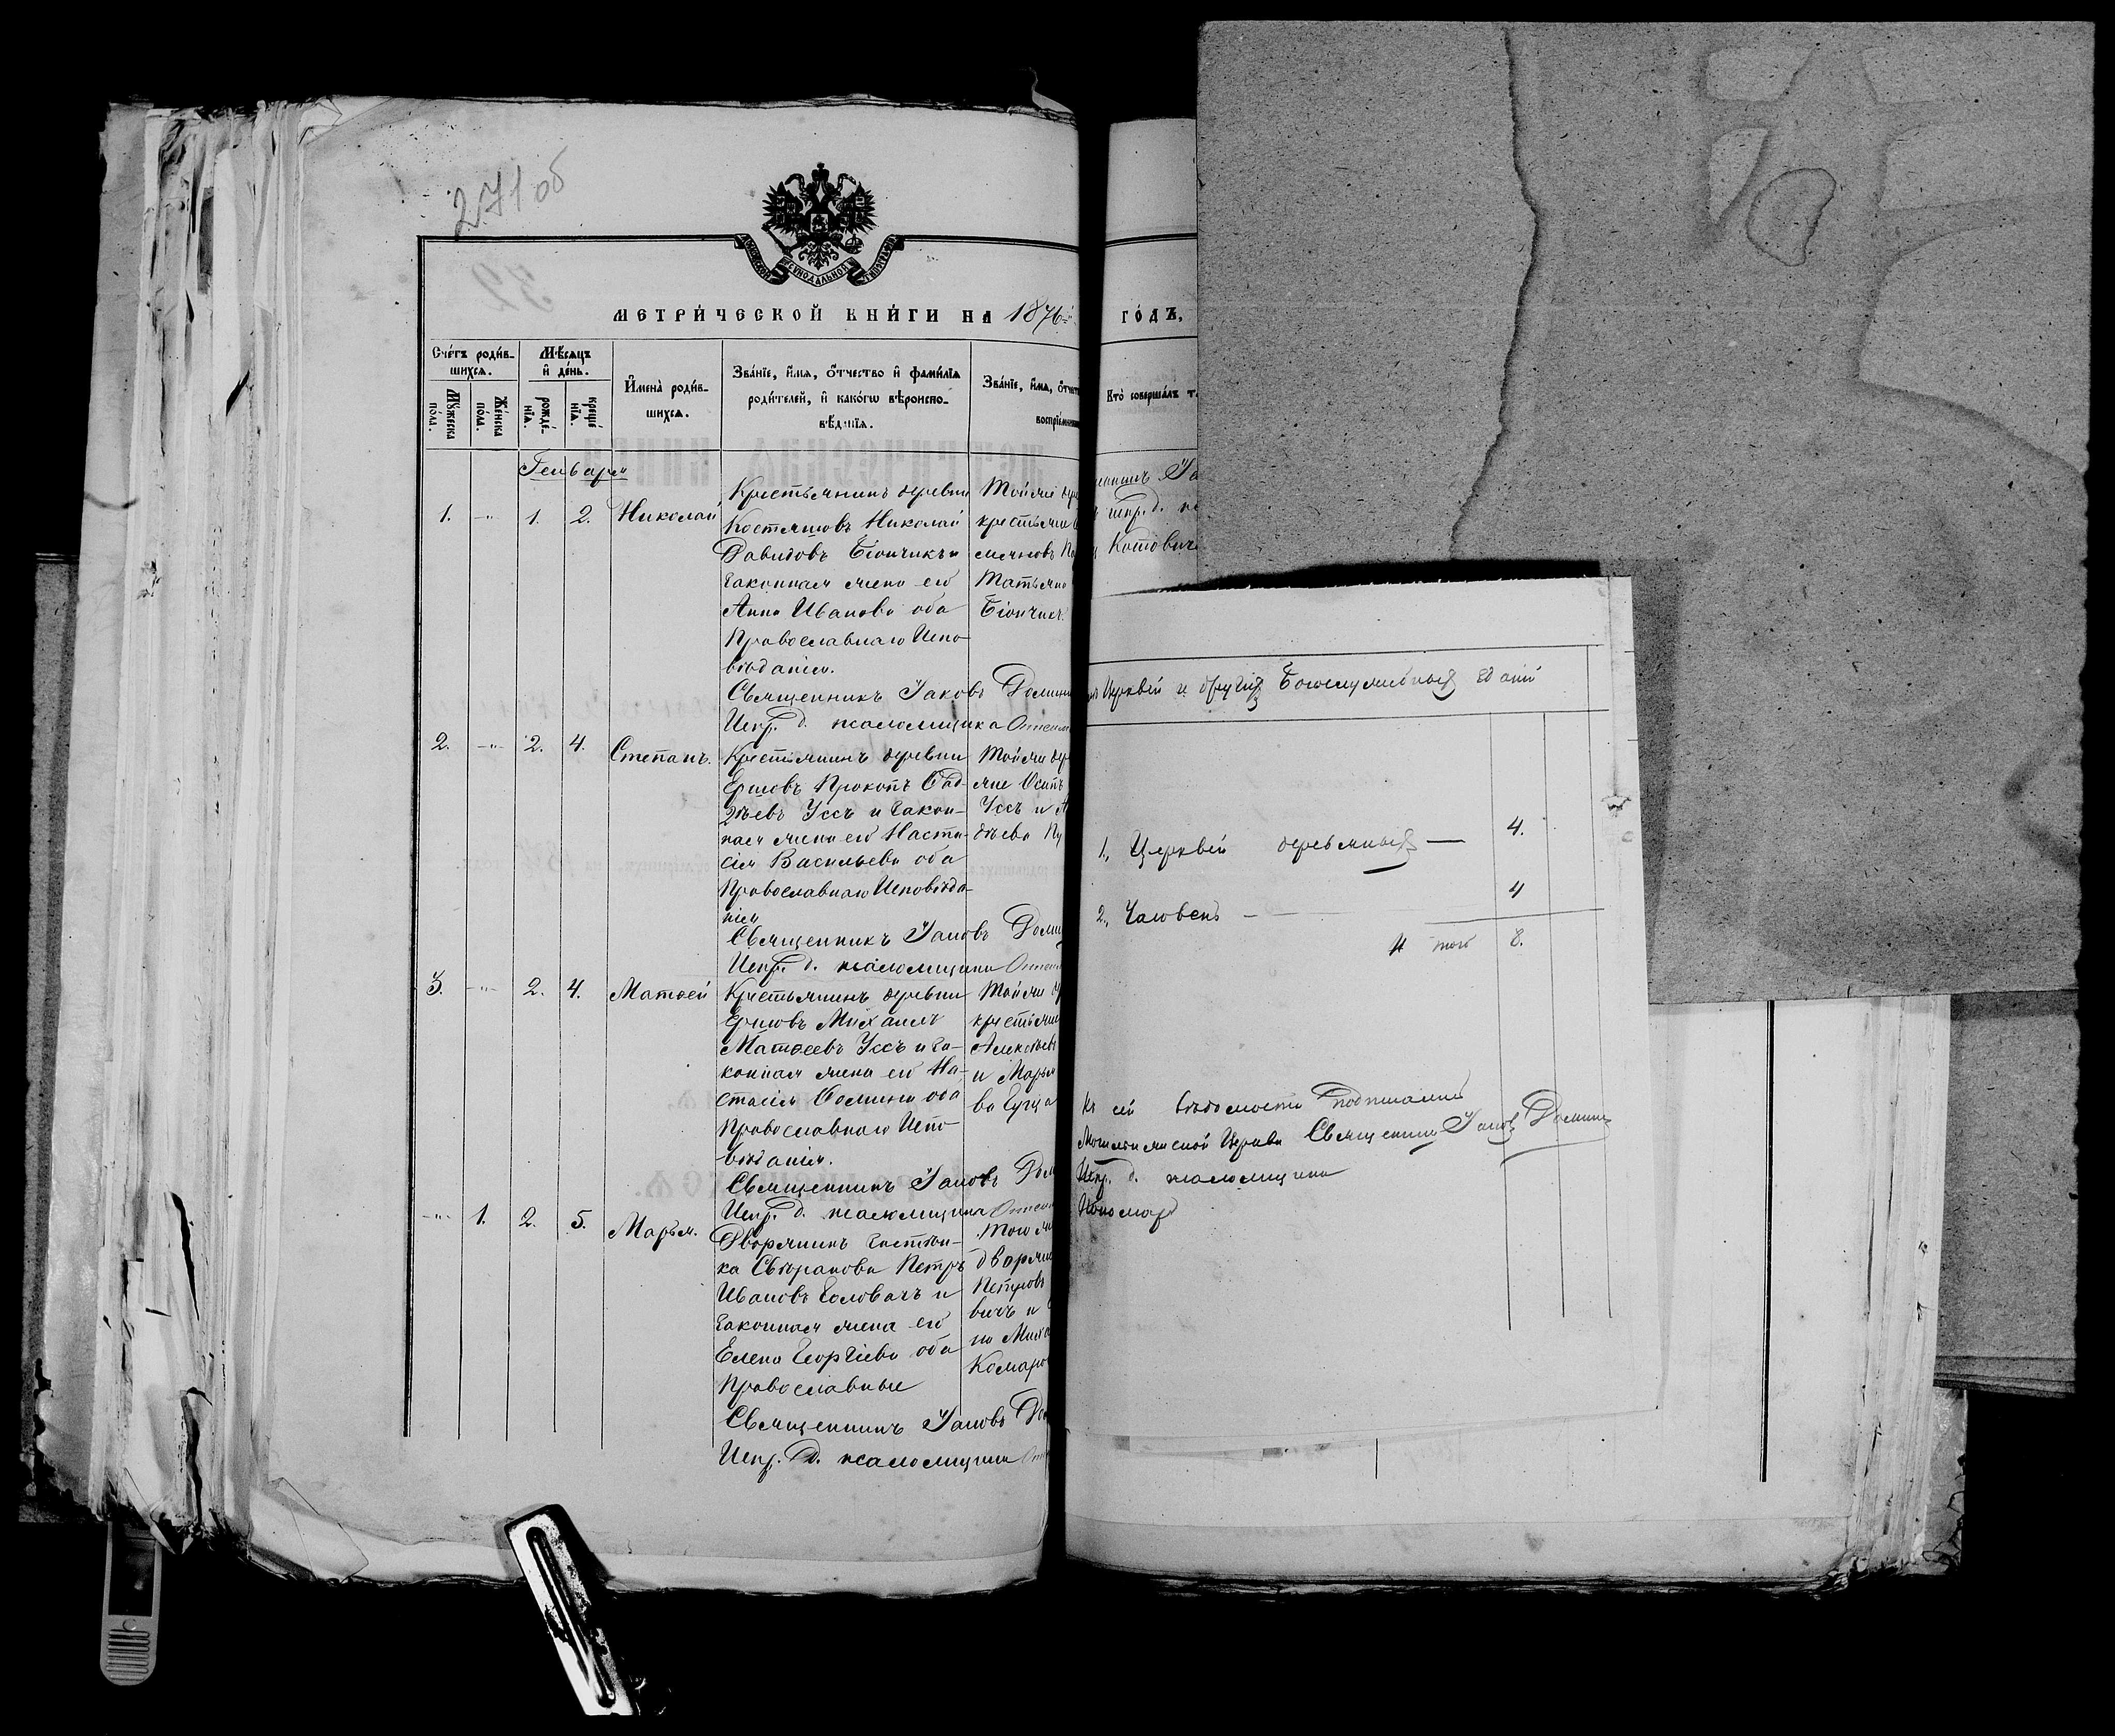 271 об
МЕТРИЧЕСКОЙ КНИГИ НА 1876й ГОДЪ,
Счетъ родив-
шихся.
Мужеска
пола.
Женска
пола.
Мѣсяцъ
и день.
рожде-
нїя.
креще
нїя.
Имена родив-
шихся.
Званїе, имя, отчество и фамилїя
родителей, и какогω вѣроиспо-
вѣданїя.
Званїе, имя, отчест
воспрїемник
Кто совершалъ т
Генваря
1. -„- 1. 2. Николай
Крестьянинъ деревни
Костяшовъ Николай
Давидовъ Бiончикъ и
законная жена его
Анна Иванова оба
Православнаго Испо-
вѣданiя.
Тойже дер
крестьяни
Татьяна
Бiончикъ
Священникъ Iаковъ Домин
Испр. д. псаломщика
2. -„- 2. 4. Степанъ.
Крестьянинъ деревни
Ершовъ Прокопъ Фад-
дѣевъ Уссъ и закон-
ная жена его Наста-
сiя Васильева оба
Православнаго Исповѣда-
нiя
Тойже дер
яне Осипъ
Уссъ и А
дѣева
Священникъ Iаковъ Доми
Испр. д. псаломщика
3. -„- 2. 4. Матѳей
Крестьянинъ деревни
Ершовъ Михаилъ
Матѳеевъ Уссъ и за-
конная жена его На-
стасiя Ѳомина оба
Православнаго Испо-
вѣданiя.
Тойже д
крестьяни
Алексѣевъ
и Марья
Священникъ Iаковъ Дом
Испр. д. псаломщика
-„- 1. 2. 5. Марья.
Дворянинъ застѣн-
ка Свѣранова Петръ
Ивановъ Головачъ и
законная жена его
Елена Георгiева оба
Православные
Того же
дворяни
Петровъ
вичъ и
на Миха
Комаро
Священникъ Iаковъ До
Испр. д. псаломщика
Церквей и другихъ Богослужебныхъ зданiй
1., Церквей деревянныхъ — 4.
2., Часовень — 4
Итого 8.
Къ сей вѣдомости подписались
Церкви Священникъ Iаковъ Домин
Испр. д. псаломщика